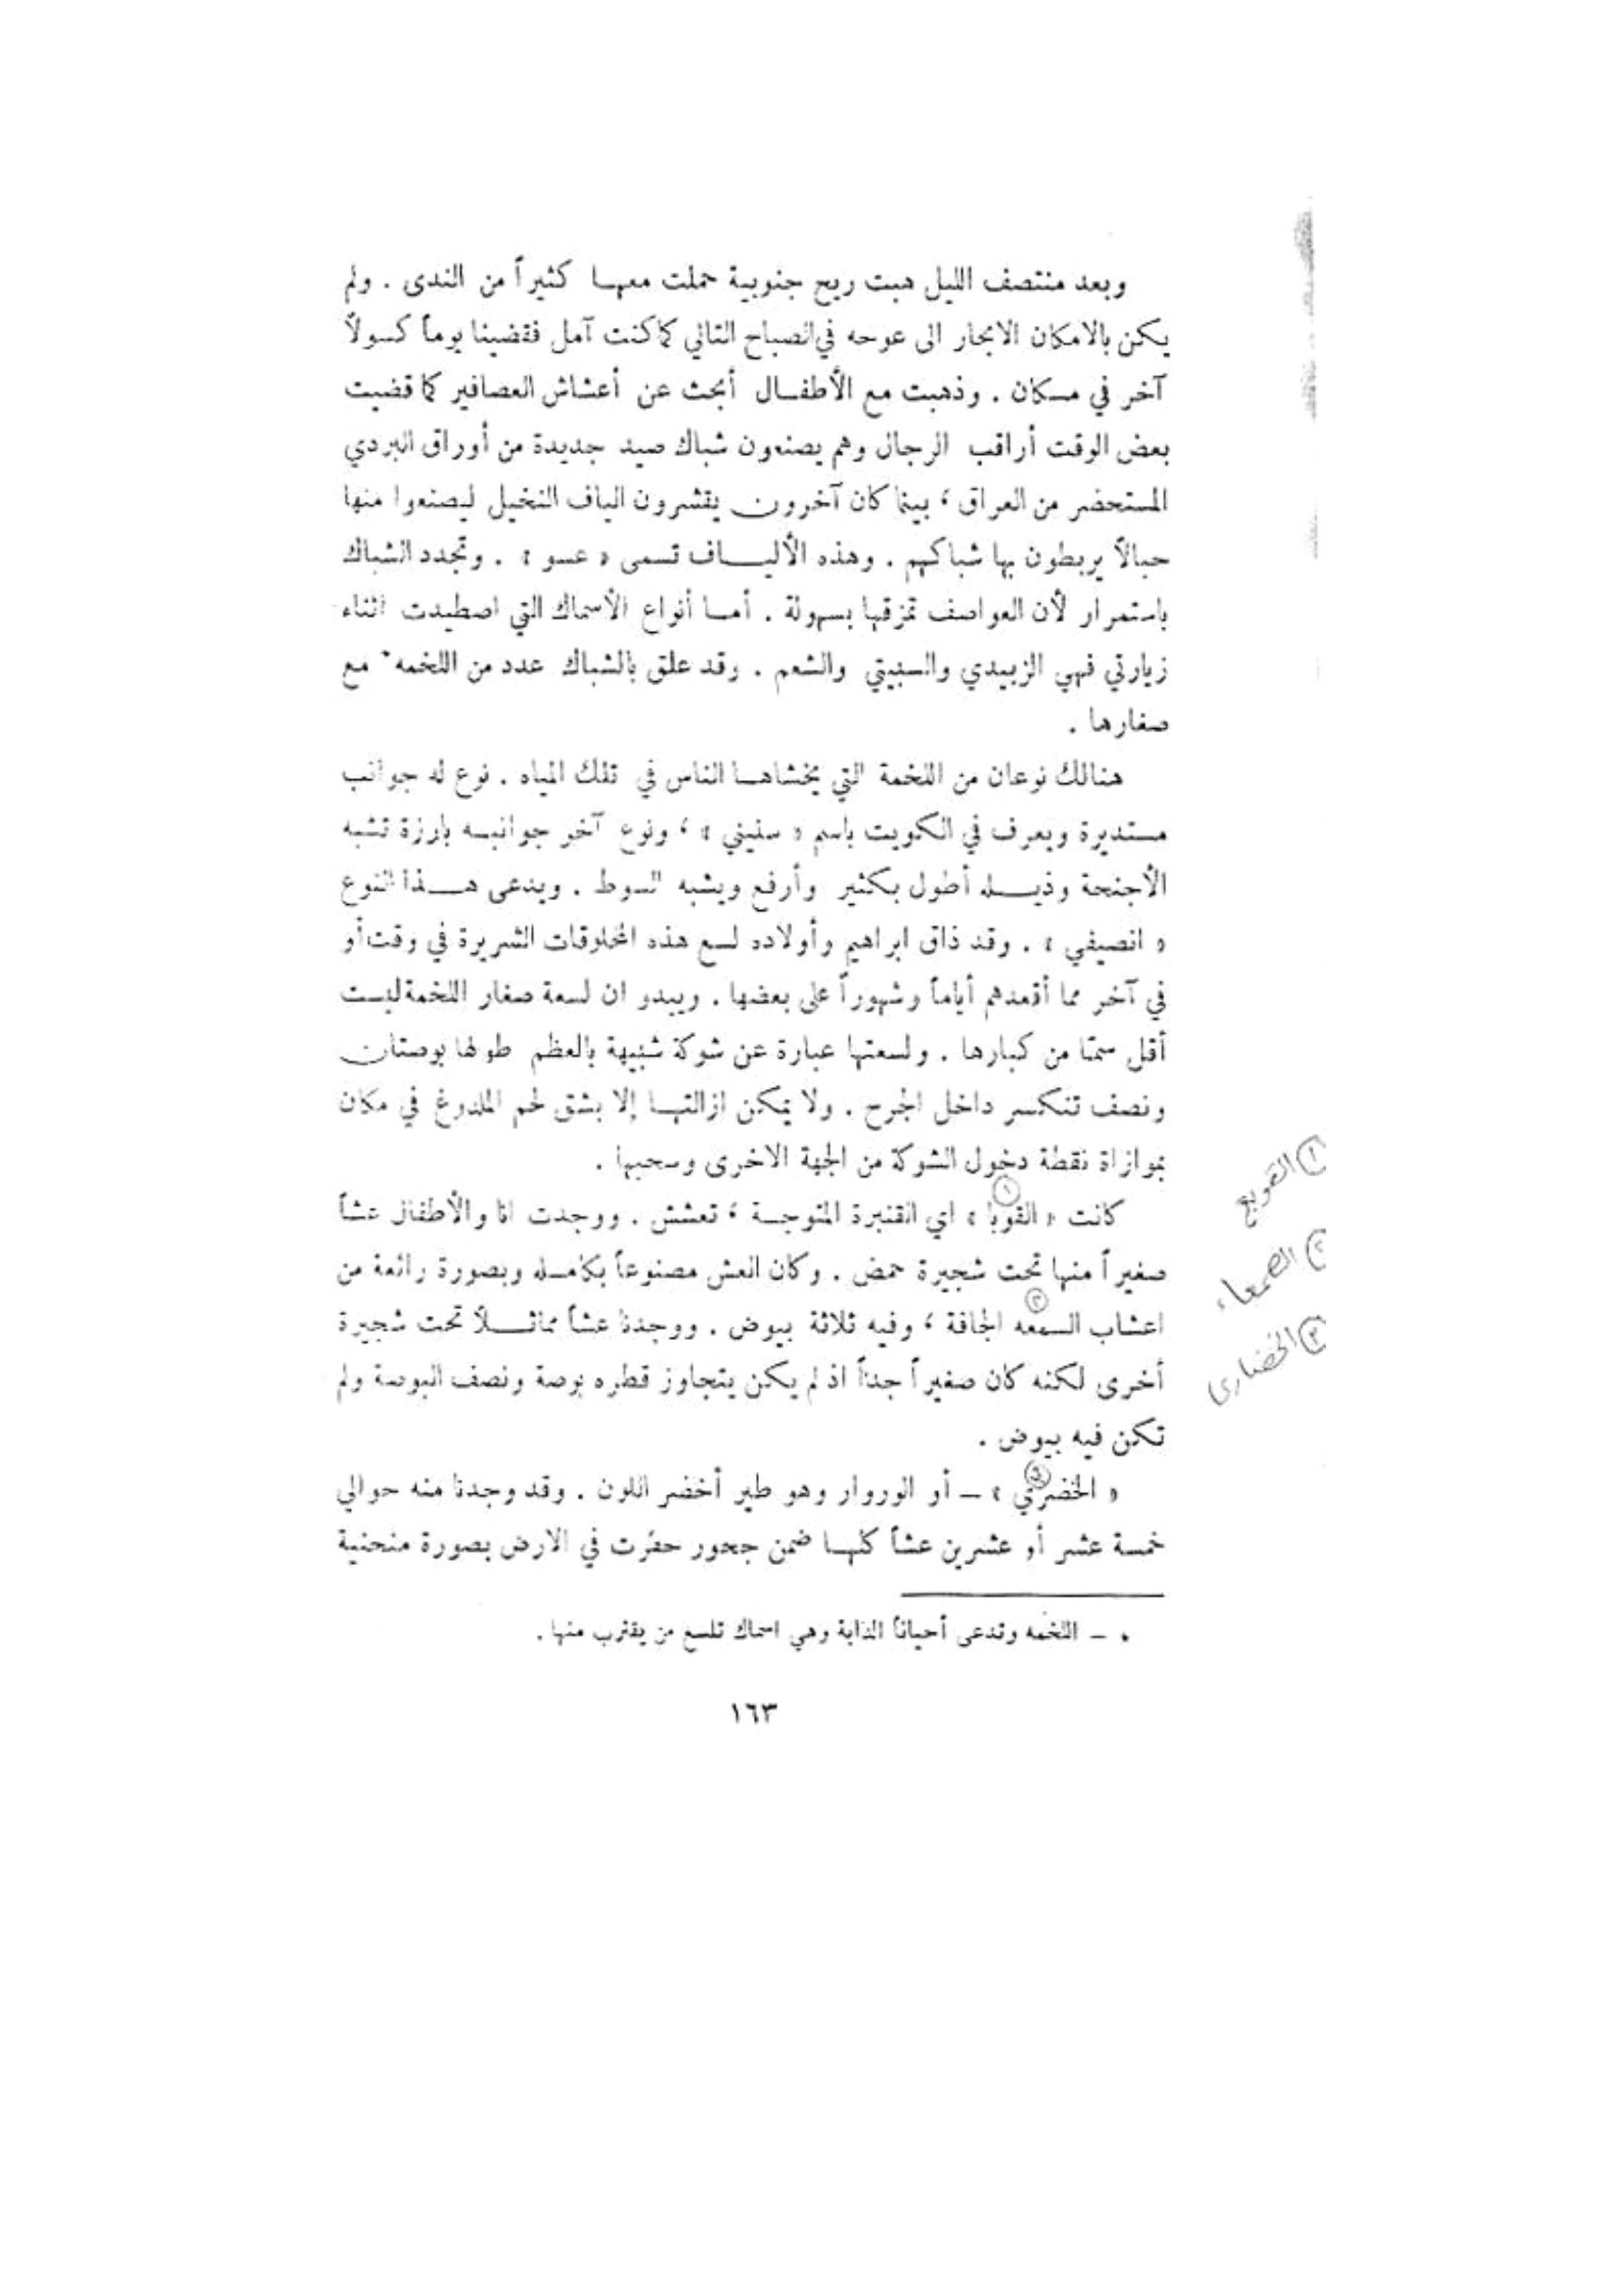 وبعد منتصف الليل هبت ريح جنوبية حملت معهـا كثيراً من الندى . ولم
يكن بالامكان الابحار الى عوحه في الصباح التالي كما كنت آمل فقضينا يوماً كسولاً
آخر في مسكان . وذهبت مع الأطفـال أبحث عن أعشاش العصافير كما قضيت
بعض الوقت أراقب الرجال وهم يصنعون شباك صيد جديدة من أوراق البردي
المستحضر من العراق ، بينما كان آخرون يقشرون الياف النخيل ليصنعوا منها
حبالاً يربطون بها شباكهم . وهذه الأليـــاف تسمى « عسو » . وتجدد الشباك
باستمرار لأن العواصف تمزقها بسهولة . أمـا أنواع الأسماك التي اصطيدت اثناء
زيارتي فهي الزبيدي والسبيتي والشعم . وقد علق بالشباك عدد من اللخمه* مع
صغارها .
هنالك نوعان من اللخمة التي يخشاهـا الناس في تلك المياه . نوع له جوانب
مستديرة ويعرف في الكويت باسم « سنيني » ، ونوع آخر جوانبـه بارزة تشبه
الأجنحة وذيـــله أطول بكثير وأرفع ويشبه السوط . ويدعى هـــذا النوع
« انصيفي » . وقد ذاق ابراهيم وأولاده لسع هذه المخلوقات الشريرة في وقت أو
في آخر مما أقعدهم أياماً وشهوراً على بعضها . ويبدو ان لسعة صغار اللخمة ليست
أقل سمّا من كبارها . ولسعتها عبارة عن شوكة شبيهة بالعظم طولها بوصتان
ونصف تنكسر داخل الجرح . ولا يمكن ازالتهـا إلا بشق لحم الملدوغ في مكان
بموازاة نقطة دخول الشوكة من الجهة الاخرى وسحبها .
كانت « القوبا » ① اي القنبرة المتوجـة ، تعشش . ووجدت انا والأطفال عشاً
صغيراً منها تحت شجيرة حمض . وكان العش مصنوعاً بكامـله وبصورة رائعة من
اعشاب السمعه ② الجافة ، وفيه ثلاثة بيوض . ووجدنا عشاً مماثـــلاً تحت شجيرة
أخرى لكنه كان صغيراً جداً اذ لم يكن يتجاوز قطره بوصة ونصف البوصة ولم
تكن فيه بيوض .
« الخضرتي » ③ — أو الوروار وهو طير أخضر اللون . وقد وجدنا منه حوالي
خمسة عشر أو عشرين عشاً كلهـا ضمن جحور حفرت في الارض بصورة منحنية
* — اللخمه وتدعى أحياناً الذابة وهي اسماك تلسع من يقترب منها .
١٦٣
① القوبع
② الصمعاء
③ الخضارى